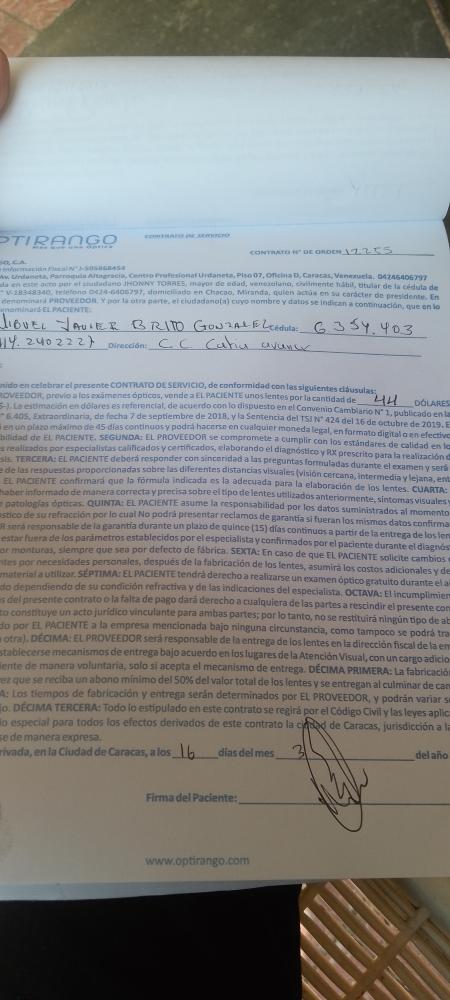 OPTIRANGO
Más que una óptica
CONTRATO DE SERVICIO
CONTRATO N° DE ORDEN 12255
SO, C.A.
Información Fiscal N° J-505868454
Av. Urdaneta, Parroquia Altagracia, Centro Profesional Urdaneta, Piso 07, Oficina D, Caracas, Venezuela. 04246406797
da en este acto por el ciudadano JHONNY TORRES, mayor de edad, venezolano, civilmente hábil, titular de la cédula de
° V-18348340, teléfono 0424-6406797, domiciliado en Chacao, Miranda, quien actúa en su carácter de presidente. En
denominará PROVEEDOR. Y por la parte, el ciudadano(a) cuyo nombre y datos se indican a continuación, que en lo
enominará EL PACIENTE:
MIGUEL JAVIER BRITO GONZALEZ Cédula: 6 354.403
414. 2402227 Dirección: C.C. Catia
nido en celebrar el presente CONTRATO DE SERVICIO, de conformidad con las siguientes cláusulas:
ROVEEDOR, previo a los exámenes ópticos, vende a EL PACIENTE unos lentes por la cantidad de 44 DÓLARES
$-). La estimación en dólares es referencial, de acuerdo con lo dispuesto en el Convenio Cambiario N° 1, publicado en la
° 6.405, Extraordinaria, de fecha 7 de septiembre de 2018, y la Sentencia del TSJ N° 424 del 16 de octubre de 2019. E
i en un plazo máximo de 45 días continuos y podrá hacerse en cualquier moneda legal, en formato digital o en efectivo
bilidad de EL PACIENTE. SEGUNDA: EL PROVEEDOR se compromete a cumplir con los estándares de calidad en le
s realizados por especialistas calificados y certificados, elaborando el diagnóstico y RX prescrito para la realización d
sis. TERCERA: EL PACIENTE deberá responder con sinceridad a las preguntas formuladas durante el examen y será
e de las respuestas proporcionadas sobre las diferentes distancias visuales (visión cercana, intermedia y lejana, ent
EL PACIENTE confirmará que la fórmula indicada es la adecuada para la elaboración de los lentes. CUARTA:
haber informado de manera correcta y precisa sobre el tipo de lentes utilizados anteriormente, síntomas visuales y
y patologías ópticas. QUINTA: EL PACIENTE asume la responsabilidad por los datos suministrados al momento
stico de su refracción por lo cual No podrá presentar reclamos de garantía si fueran los mismos datos confirma
R será responsable de la garantía durante un plazo de quince (15) días continuos a partir de la entrega de los len
estar fuera de los parámetros establecidos por el especialista y confirmados por el paciente durante el diagnós
or monturas, siempre que sea por defecto de fábrica. SEXTA: En caso de que EL PACIENTE solicite cambios e
ntes por necesidades personales, después de la fabricación de los lentes, asumirá los costos adicionales y de
material a utilizar. SÉPTIMA: EL PACIENTE tendrá derecho a realizarse un examen óptico gratuito durante el a
do dependiendo de su condición refractiva y de las indicaciones del especialista. OCTAVA: El incumplimien
s del presente contrato o la falta de pago dará derecho a cualquiera de las partes a rescindir el presente con
to constituye un acto jurídico vinculante para ambas partes; por lo tanto, no se restituirá ningún tipo de ab
do por EL PACIENTE a la empresa mencionada bajo ninguna circunstancia, como tampoco se podrá tra
otra). DÉCIMA: EL PROVEEDOR será responsable de la entrega de los lentes en la dirección fiscal de la em
stablecerse mecanismos de entrega bajo acuerdo en los lugares de la Atención Visual, con un cargo adicio
iente de manera voluntaria, solo si acepta el mecanismo de entrega. DÉCIMA PRIMERA: La fabricación
vez que se reciba un abono mínimo del 50% del valor total de los lentes y se entregan al culminar de can
A: Los tiempos de fabricación y entrega serán determinados por EL PROVEEDOR, y podrán variar s
jo. DÉCIMA TERCERA: Todo lo estipulado en este contrato se regirá por el Código Civil y las leyes aplic
lo especial para todos los efectos derivados de este contrato la ciudad de Caracas, jurisdicción a la
se de manera expresa.
rivada, en la Ciudad de Caracas, a los 16 días del mes 3 del año
Firma del Paciente:
www.optirango.com